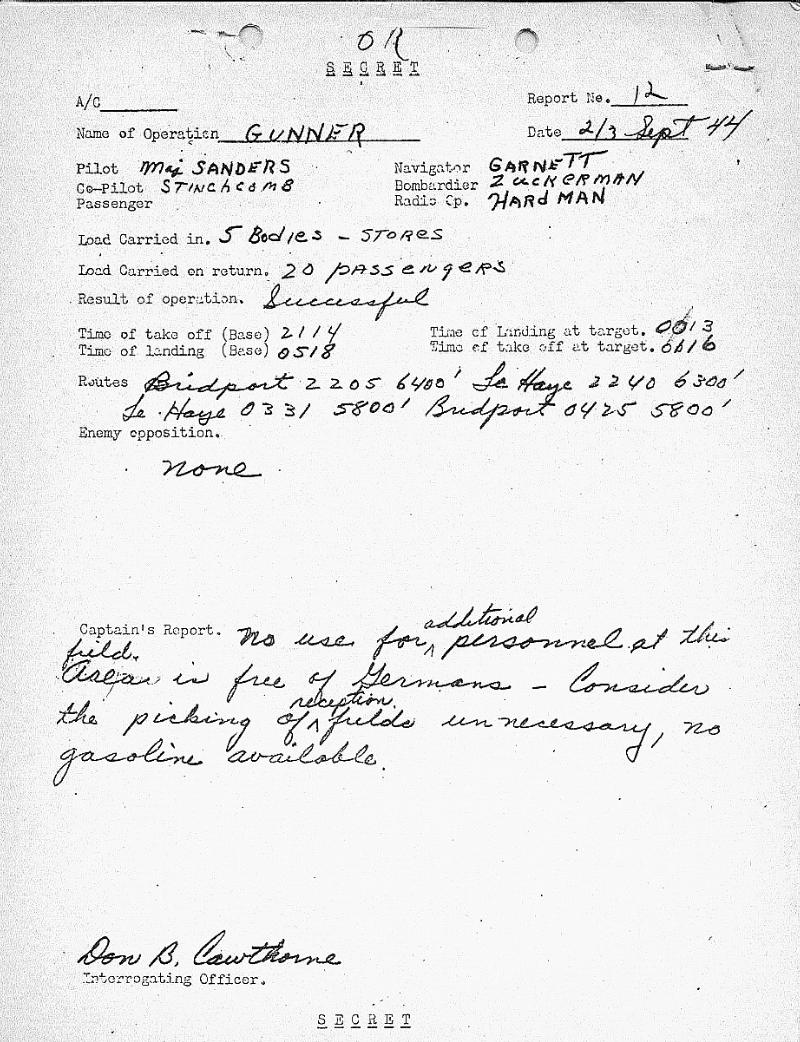 OR
SECRET
A/C
Report No. 12
Name of Operation GUNNER
Date 2/3 Sept 44
Pilot Maj SANDERS
Navigator GARNETT
Co-Pilot STINchcomB
Bombardier ZuckERMAN
Passenger
Radio Op. HARdMAN
Load Carried in. 5 Bodies - STORES
Load Carried on return. 20 passengers
Result of operation. Successful
Time of take off (Base) 2114
Time of Landing at target. 0013
Time of landing (Base) 0518
Time of take off at target.
Routes Bridport 2205 6400' Le Haye 2240 6300'
Le Haye 0331 5800' Bridport 0425 5800'
Enemy opposition.
None
Captain's Report. No use for additional personnel at this
field.
Area is free of Germans - Consider
the picking of reception fields unnecessary, no
gasoline available.
Don B. Cawthorne
Interrogating Officer.
SECRET